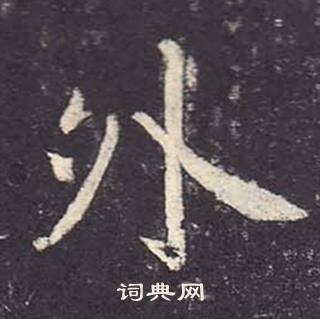 外
词典网